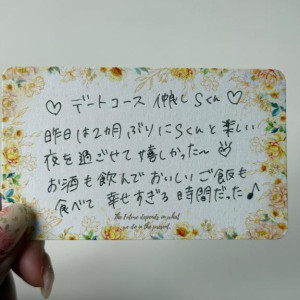 ♡ デートコース 仲良し Sくん ♡
昨日は2カ月ぶりにSくんと楽しい
夜を過ごせて嬉しかった〜
お酒も飲んでおいしいご飯も
食べて 幸せすぎる時間だった♪
The future depends on what
we do in the present